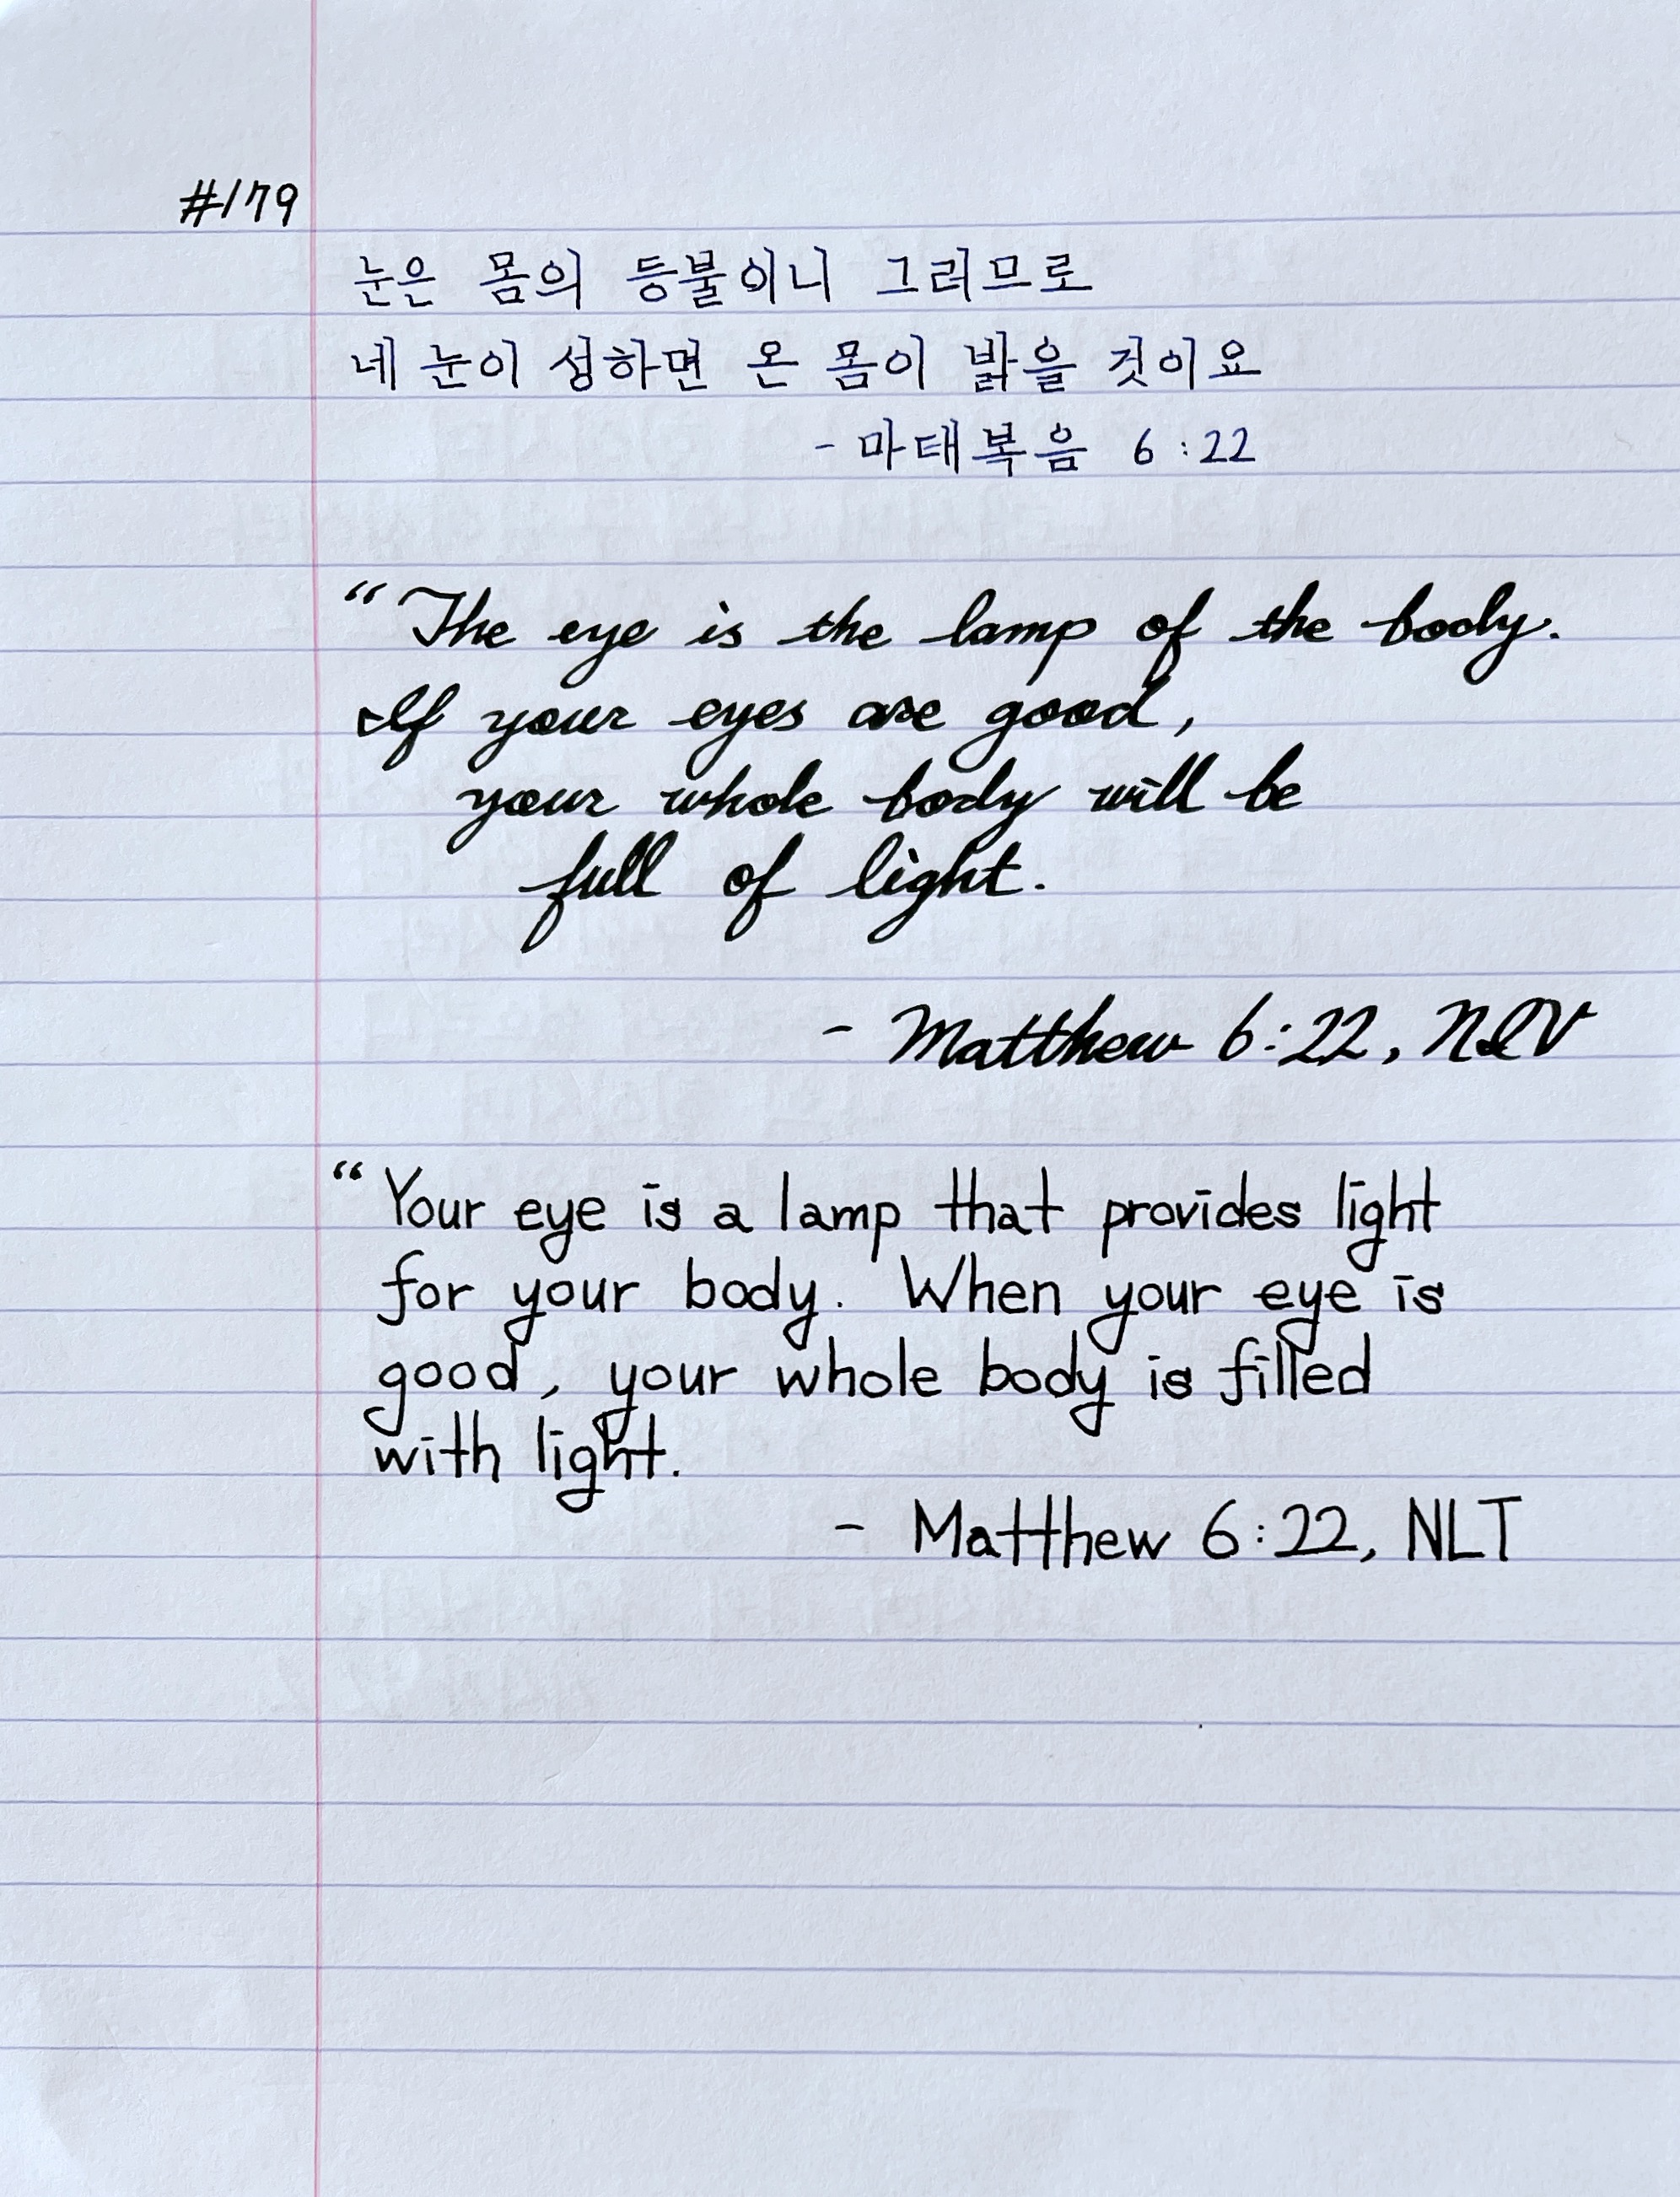 #179
눈은 몸의 등불이니 그러므로
네 눈이 성하면 온 몸이 밝을 것이요
- 마태복음 6:22
“The eye is the lamp of the body.
If your eyes are good,
your whole body will be
full of light.
- Matthew 6:22, NIV
“Your eye is a lamp that provides light
for your body. When your eye is
good, your whole body is filled
with light.
- Matthew 6:22, NLT